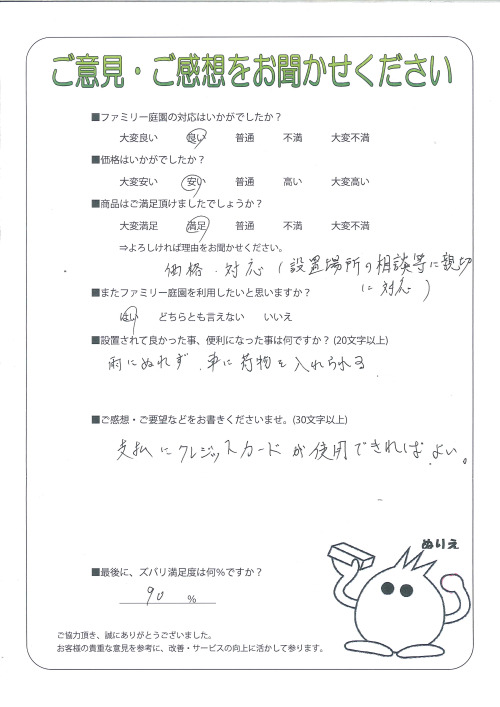 ご意見・ご感想をお聞かせください
■ファミリー庭園の対応はいかがでしたか？
大変良い 良い 普通 不満 大変不満
■価格はいかがでしたか？
大変安い 安い 普通 高い 大変高い
■商品はご満足頂けましたでしょうか？
大変満足 満足 普通 不満 大変不満
⇒よろしければ理由をお聞かせください。
価格・対応（設置場所の相談等に親切
に対応）
■またファミリー庭園を利用したいと思いますか？
はい どちらとも言えない いいえ
■設置されて良かった事、便利になった事は何ですか？(20文字以上)
雨にぬれず、車に荷物を入れられる
■ご感想・ご要望などをお書きくださいませ。(30文字以上)
支払にクレジットカードが使用できればよい。
ぬりえ
■最後に、ズバリ満足度は何％ですか？
90 %
ご協力頂き、誠にありがとうございました。
お客様の貴重な意見を参考に、改善・サービスの向上に活かして参ります。